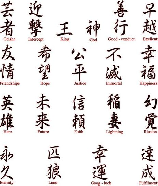 芸者 迎撃 王 神 善行 卓越
Geisha Intercept King God Good - conduct Excellent
友情 希望 公平 不滅 幸福
Friendships Hope Justice Immortal Happiness
英雄 未来 信頼 稲妻 幻覚
Hero Future Faith Lightning Illusion
永久 匹狼 幸運 達成
Eternity Lone Good - luck Fulfillment